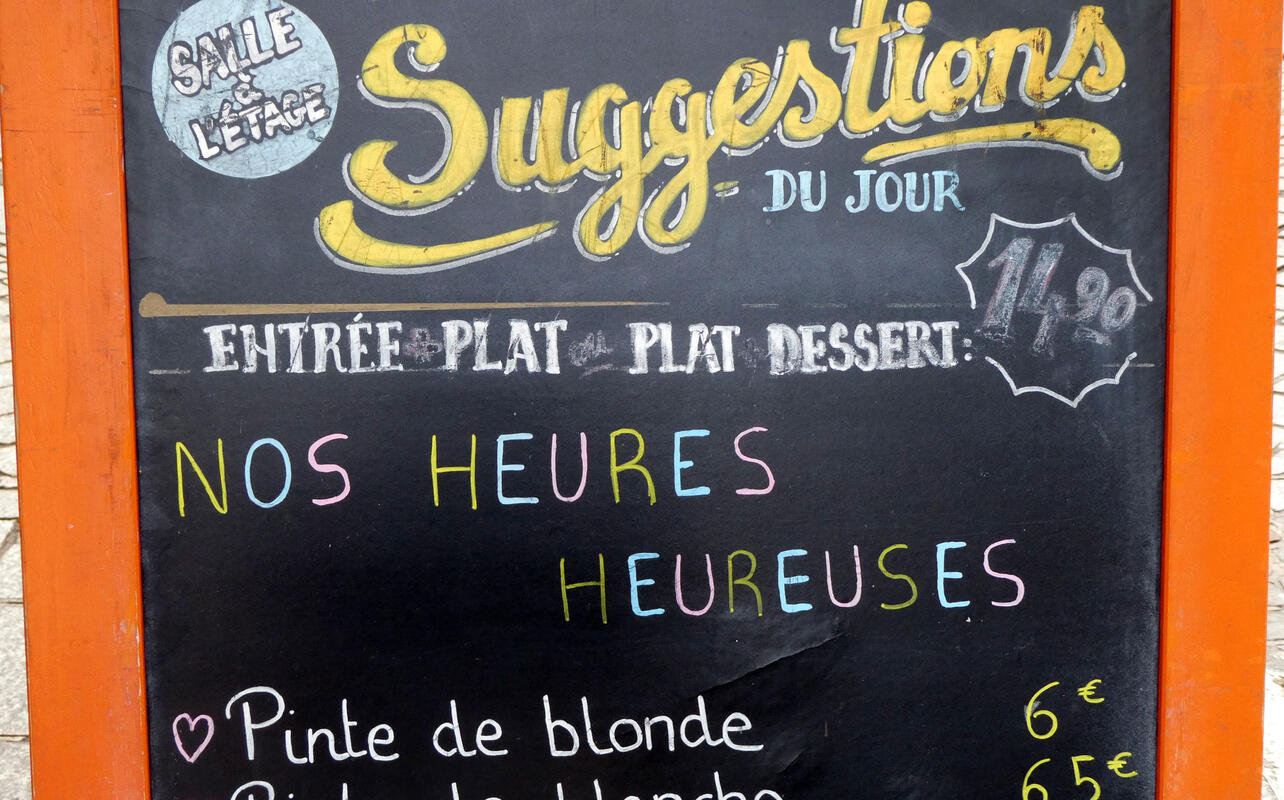 SALLE
à
L'ÉTAGE
Suggestions
DU JOUR
14,90
ENTRÉE + PLAT ou PLAT + DESSERT:
NOS HEURES
HEUREUSES
Pinte de blonde 6€
Pinte de blanche 6,5€